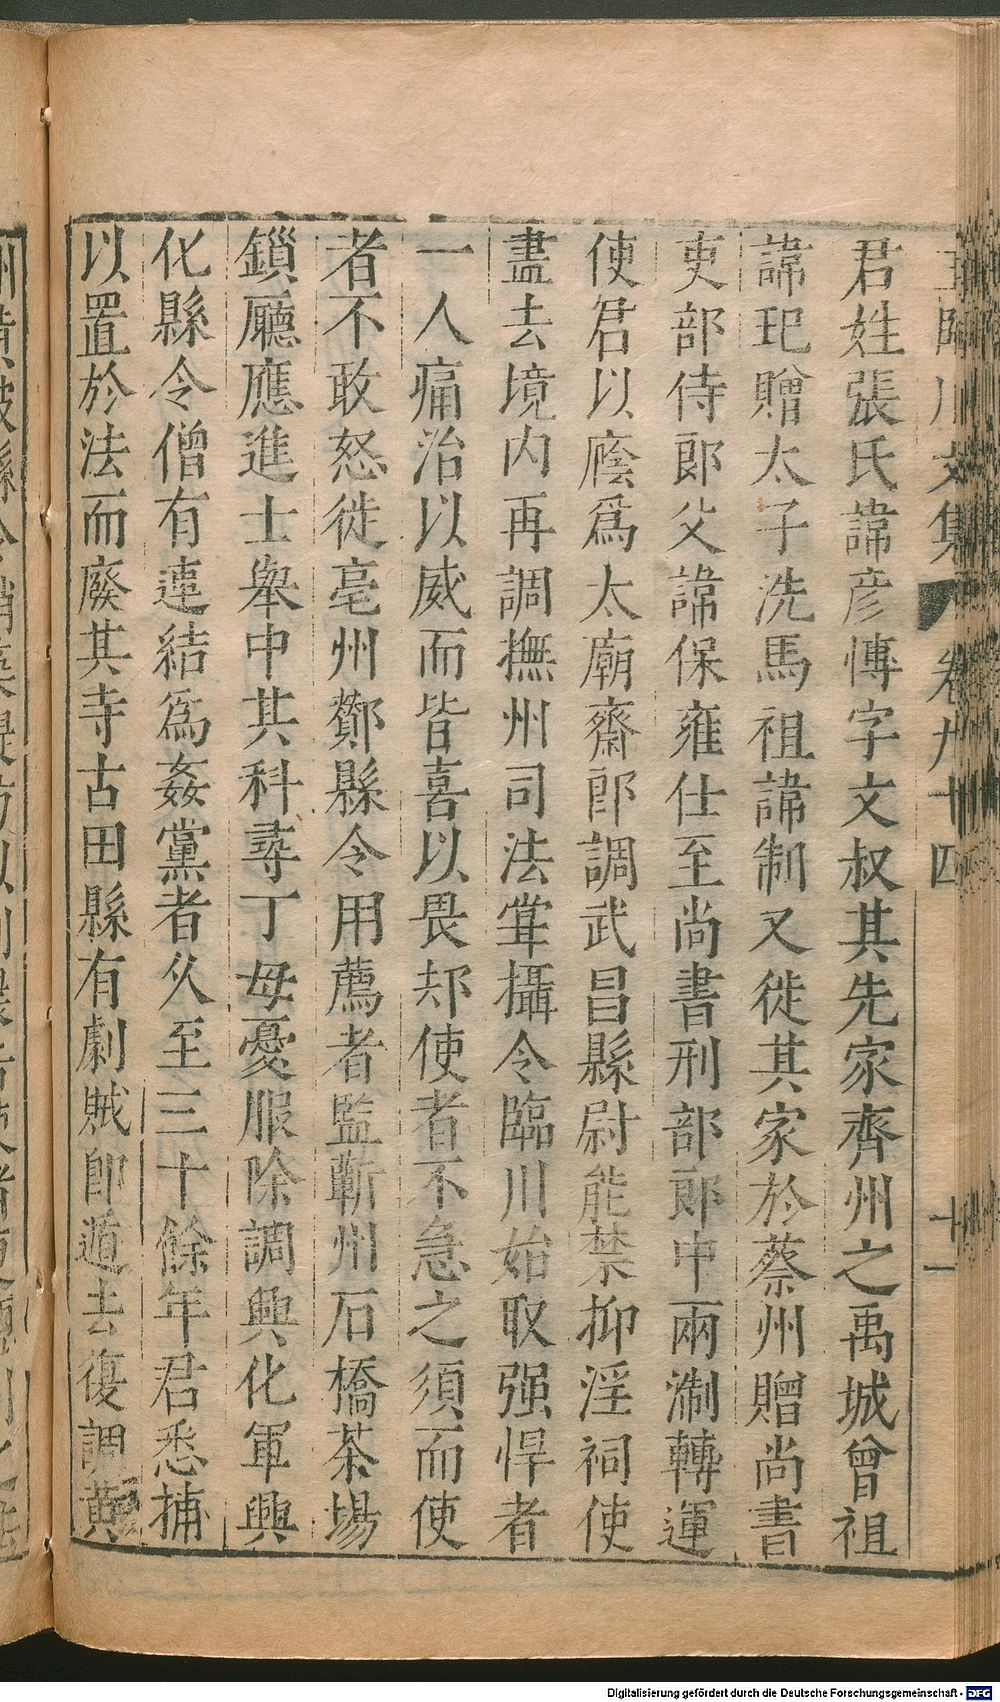 王臨川文集 卷九十四 十一
君姓張氏諱彦博字文叔其先家齊州之禹城曾祖
諱玘贈太子洗馬祖諱制又徙其家於蔡州贈尚書
吏部侍郎父諱保雍仕至尚書刑部郎中兩淛轉運
使君以廕爲太廟齋郎調武昌縣尉能禁抑淫祠使
盡去境内再調撫州司法甞攝令臨川始取强悍者
一人痛治以威而皆喜以畏却使者不急之須而使
者不敢怒徙亳州酇縣令用薦者監蘄州石橋茶場
鎻廳應進士舉中其科尋丁母憂服除調興化軍興
化縣令僧有連結爲姦黨者久至三十餘年君悉捕
以置於法而廢其寺古田縣有劇賊卽遁去復調黄
Digitalisierung gefördert durch die Deutsche Forschungsgemeinschaft - DFG